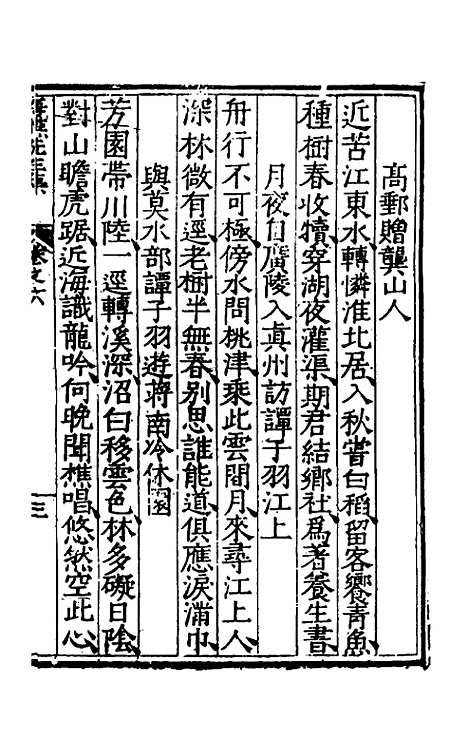 高郵贈龔山人
近苦江東水轉憐淮北居入秋嘗白稻留客饗青魚
種樹春收犢穿湖夜灌渠期君結鄉社爲著養生書
月夜自廣陵入真州訪譚子羽江上
舟行不可極傍水問桃津乘此雲間月來尋江上人
深林微有逕老樹半無春别思誰能道俱應淚滿巾
與莫水部譚子羽遊蔣南泠休園
芳園帶川陸一逕轉溪深沼白移雲色林多礙日陰
對山瞻虎踞近海識龍吟何晚聞樵唱悠然空此心
卷之六
三